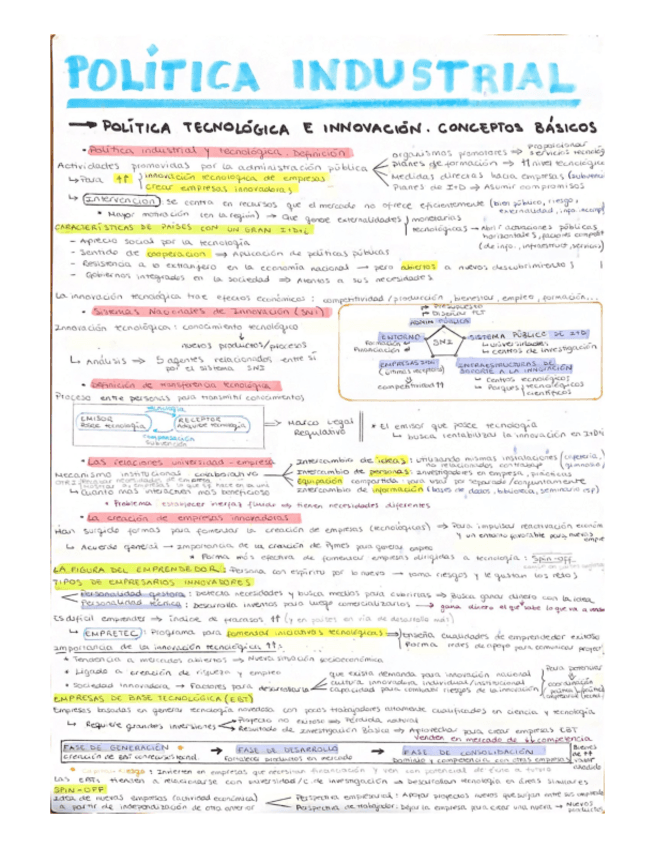 POLÍTICA INDUSTRIAL
→ POLÍTICA TECNOLÓGICA E INNOVACIÓN. CONCEPTOS BÁSICOS
• Política industrial y tecnológica. Definición
Actividades promovidas por la administración pública
organismos promotores → Proporcionar servicios
planes de formación → ↑↑ nivel tecnológico
Medidas directas hacia empresas
Planes de I+D → Asumir compromisos
↳ Para ↑↑ innovación tecnológica de empresas
crear empresas innovadoras
↳ Intervención: se centra en recursos que el mercado no ofrece eficientemente (bien público, riesgo,
externalidad, info.
• Mayor motivación (en la región) → Que genere externalidades
monetarias
tecnológicas → Abrir actuaciones públicas
CARACTERÍSTICAS DE PAÍSES CON UN GRAN I+D+i
- Aprecio social por la tecnología
- Sentido de cooperación → Aplicación de políticas públicas
- Resistencia a lo extranjero en la economía nacional → pero abiertos a nuevos descubrimientos
- Gobiernos integrados en la sociedad → Atentos a sus necesidades
La innovación tecnológica trae efectos económicos: competitividad/producción, bienestar, empleo, formación...
• Sistemas Nacionales de Innovación (SNI)
Innovación tecnológica: conocimiento tecnológico
↓
nuevos productos/procesos
↳ Análisis → 5 agentes relacionados entre sí
por el sistema SNI
Presupuesto
ADMÓN PÚBLICA
ENTORNO
SNI
SISTEMA PÚBLICO DE I+D
↳ Universidades
↳ Centros de investigación
EMPRESAS
competitividad ↑↑
INFRAESTRUCTURAS DE
SOPORTE A LA INNOVACIÓN
↳ Centros tecnológicos
↳ Parques tecnológicos
científicos
• Definición de transferencia tecnológica
Proceso entre personas para transmitir conocimientos
tecnología
EMISOR
Posee tecnología
RECEPTOR
Adquiere tecnología
compensación
→ Marco Legal
Regulativo
* El emisor que posee tecnología
↳ busca rentabilizar la innovación en I+D+i
• Las relaciones universidad - empresa
Mecanismo institucional colaborativo
Intercambio de ideas: utilizando mismas instalaciones (cafetería,
Intercambio de personas: investigadores en empresa, prácticas
Equipación compartida: para usos por separado/conjuntamente
Intercambio de información (bases de datos, biblioteca, seminarios
↳ Cuanto más interactivos más beneficioso
• Problema: establecer inercias → tienen necesidades diferentes
• La creación de empresas innovadoras
Han surgido formas para fomentar la creación de empresas (tecnológicas) → Para impulsar
y un entorno favorable para nuevas
↳ Acuerdo general → Importancia de la creación de Pymes para generar empleo
• Forma más efectiva de fomentar empresas dirigidas a tecnología: Spin-off
LA FIGURA DEL EMPRENDEDOR: Persona con espíritu por lo nuevo → toma riesgos y le gustan los retos
TIPOS DE EMPRESARIOS INNOVADORES
Personalidad gestora: Detecta necesidades y busca medios para cubrirlas → Busca ganar dinero con la idea
Personalidad técnica: Desarrolla inventos para luego comercializarlos
Es difícil emprender → índice de fracasos ↑↑
↳ EMPRETEC: Programa para fomentar iniciativas tecnológicas
Enseña cualidades de emprendedor exitoso
Forma redes de apoyo para comunicar
Importancia de la innovación tecnológica ↑↑:
• Tendencia a mercados abiertos → Nueva situación socioeconómica
• Ligado a creación de riqueza y empleo
• Sociedad innovadora → Factores para desarrollarla
que exista demanda para innovación nacional
cultura innovadora individual/institucional
capacidad para combatir riesgos de la innovación
Para potenciar
coordinación
EMPRESAS DE BASE TECNOLÓGICA (EBT)
Empresas basadas en generar tecnología novedosa con pocos trabajadores altamente cualificados en ciencia y tecnología
↳ Requiere grandes inversiones
Proyecto no exitoso → Pérdida natural
Resultado de Investigación Básica → Aprovechar para crear empresas EBT
Venden en mercado de ↓ competencia
FASE DE GENERACIÓN
creación de EBT
→ FASE DE DESARROLLO
Fortalecer productos en mercado
→ FASE DE CONSOLIDACIÓN
Dominio y competencia con otras empresas
Bienes
de ↑↑
valor
añadido
riesgo: Invierten en empresas que necesitan financiación y ven con potencial de éxito a futuro
Las EBTs tienden a relacionarse con universidad/c. de investigación → Desarrollan tecnología en áreas similares
SPIN-OFF
Idea de nuevas empresas (actividad económica)
a partir de independización de otra anterior
Perspectiva empresarial: Apoyar proyectos nuevos que surjan entre sus
Perspectiva de trabajador: Dejar la empresa para crear una nueva → Nuevos
productos